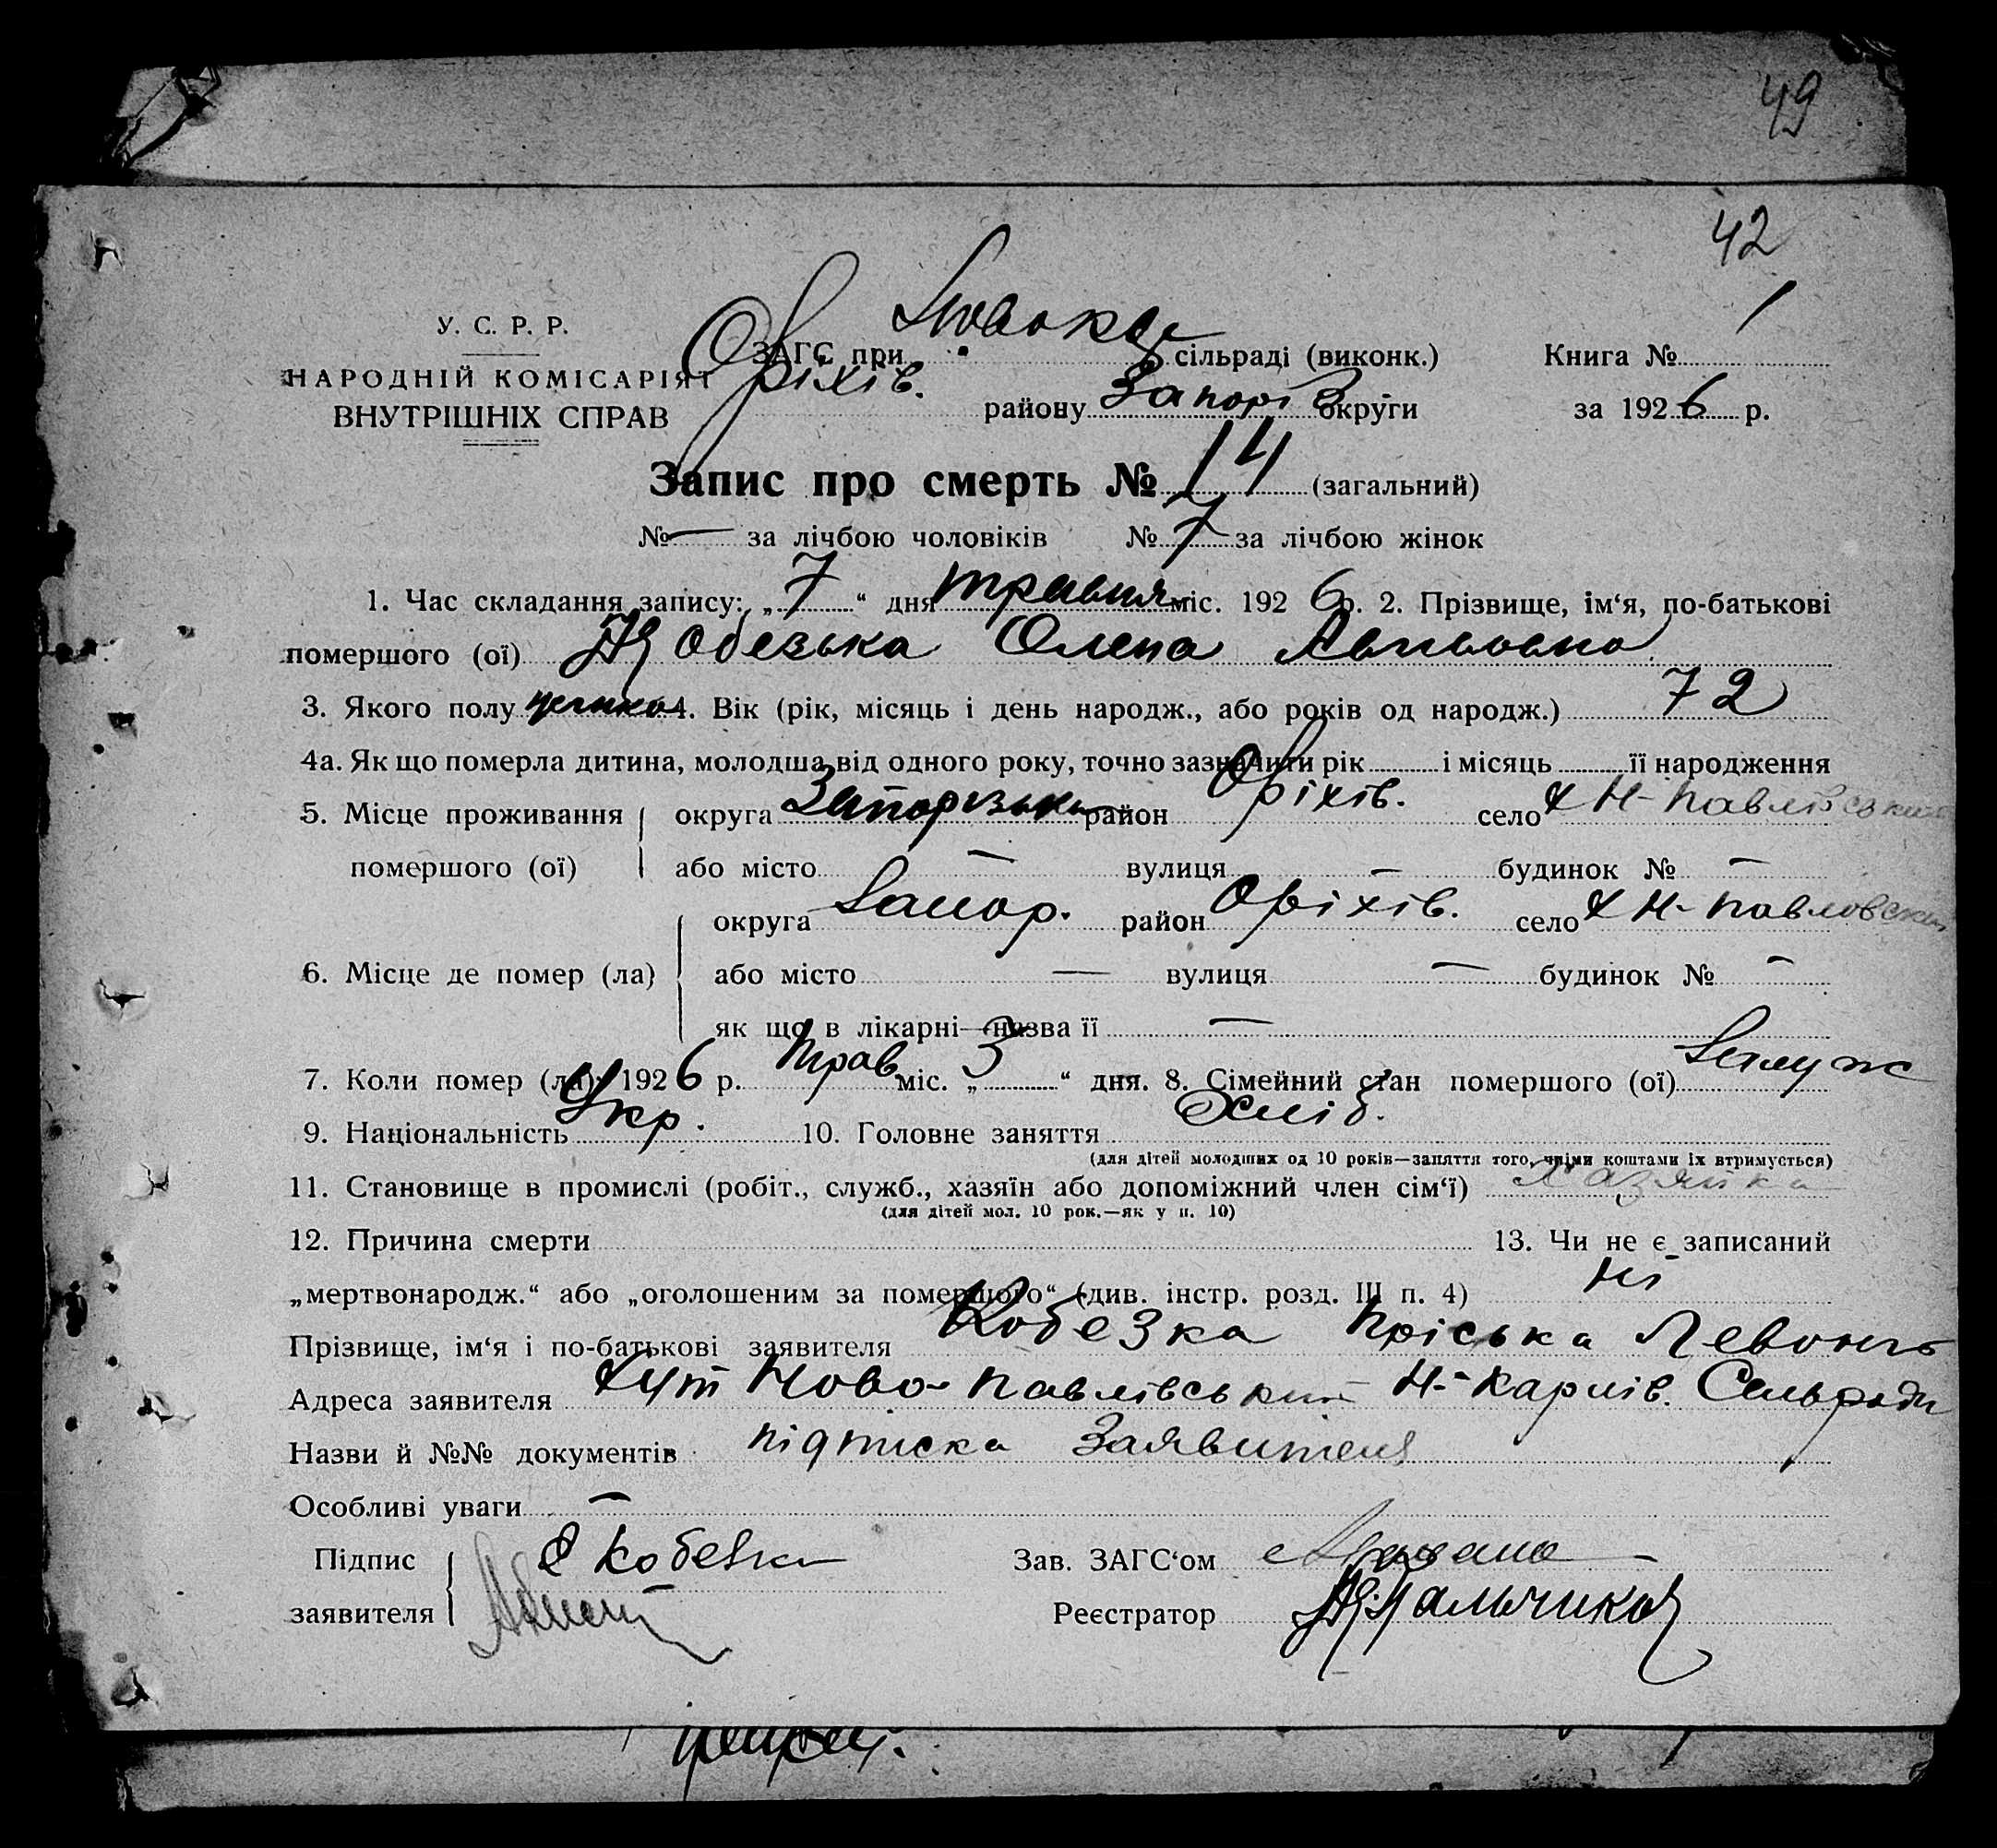 49
42
У. С. Р. Р.
НАРОДНІЙ КОМІСАРІЯТ
ВНУТРІШНІХ СПРАВ
ЗАГС при сільраді (виконк.) Книга № 1
Оріхів. району Запоріз округи за 1926 р.
Запис про смерть № 14 (загальний)
№ — за лічбою чоловіків № 7 за лічбою жінок
1. Час складання запису: „7“ дня травня міс. 1926 р. 2. Прізвище, ім‘я, по-батькові
помершого (ої) Кобезька Олена
3. Якого полу 4. Вік (рік, місяць і день народж., або років од народж.) 72
4а. Як що померла дитина, молодша від одного року, точно зазначити рік і місяць її народження
5. Місце проживання округа Запорізька район Оріхів. село х Н-Павлівський
помершого (ої) або місто — вулиця — будинок № —
округа Запор. район Оріхів. село х Н-Павловский
6. Місце де помер (ла) або місто — вулиця — будинок № —
як що в лікарні—назва її —
7. Коли помер (ла) 1926 р. Трав міс. „3“ дня. 8. Сімейний стан помершого (ої) Замуж
9. Національність Укр. 10. Головне заняття Хліб.
(для дітей молодших од 10 років—заняття того, чиїми коштами їх втримується)
11. Становище в промислі (робіт., служб., хазяїн або допоміжний член сім‘ї) Хазяйка
(для дітей мол. 10 рок.—як у п. 10)
12. Причина смерти 13. Чи не є записаний
„мертвонародж.“ або „оголошеним за померлого“ (див. інстр. розд. III п. 4) Ні
Прізвище, ім‘я і по-батькові заявителя Кобезка Пріська Левонть
Адреса заявителя Хут Ново-Павлівський Н-Карлів. Сельради
Назви й №№ документів підписка Заявителя
Особливі уваги —
Підпис Кобезка Зав. ЗАГС‘ом
заявителя Реєстратор Пальчиков